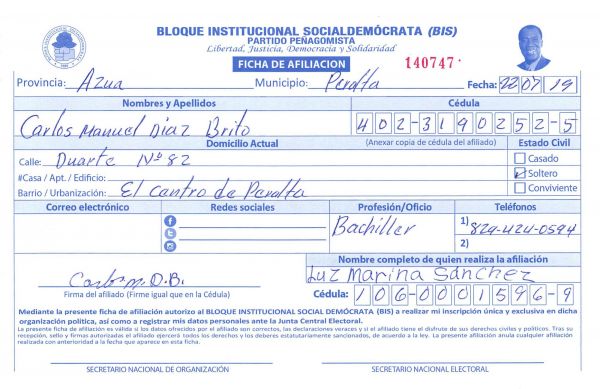 BLOQUE INSTITUCIONAL SOCIALDEMÓCRATA (BIS)
PARTIDO PEÑAGOMISTA
Libertad, Justicia, Democracia y Solidaridad
FICHA DE AFILIACION 140747
Provincia: Azua Municipio: Peralta Fecha: 22 07 19
Nombres y Apellidos Cédula
Carlos Manuel Diaz Brito 402-3190252-5
Domicilio Actual (Anexar copia de cédula del afiliado) Estado Civil
Calle: Duarte Nº 82 Casado
#Casa / Apt. / Edificio: Soltero
Barrio / Urbanización: El Centro de Peralta Conviviente
Correo electrónico Redes sociales Profesión/Oficio Teléfonos
Bachiller 1) 829-424-0594
2)
Nombre completo de quien realiza la afiliación
Luz Marina Sánchez
Carlos M. D.B.
Firma del afiliado (Firme igual que en la Cédula) Cédula: 106-0001596-9
Mediante la presente ficha de afiliación autorizo al BLOQUE INSTITUCIONAL SOCIAL DEMÓCRATA (BIS) a realizar mi inscripción única y exclusiva en dicha
organización política, así como a registrar mis datos personales ante la Junta Central Electoral.
La presente ficha de afiliación es válida si los datos ofrecidos por el afiliado son correctos, las declaraciones veraces y si el afiliado tiene el disfrute de sus derechos civiles y políticos. Tras su
recepción, sello y firmas autorizadas el afiliado ejercerá todos los derechos y los deberes estatutariamente sancionados, de acuerdo a la ley. La presente afiliación anula cualquier afiliación
realizada con anterioridad a la fecha que aparece en esta ficha.
SECRETARIO NACIONAL DE ORGANIZACIÓN SECRETARIO NACIONAL ELECTORAL